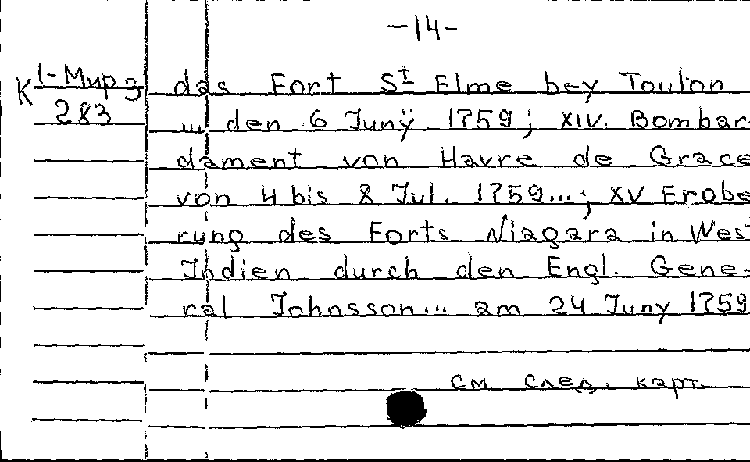 -14-
K 1-Мир з
283
das Fort St Elme bey Toulon
... den 6 Junÿ 1759; XIV. Bombar-
dament von Havre de Grace
von 4 bis 8 Jul. 1759...; XV Erobe
rung des Forts Niagara in West
Indien durch den Engl. Gene-
ral Johnsson... am 24 Juny 1759
см след. карт.